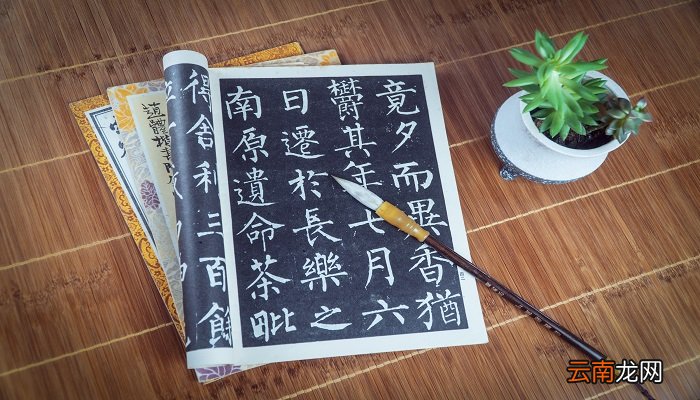 竟夕而異香猶
欝其年七月六
日遷於長樂之
南原遺命茶毗
得舍利三百餘
云南龙网